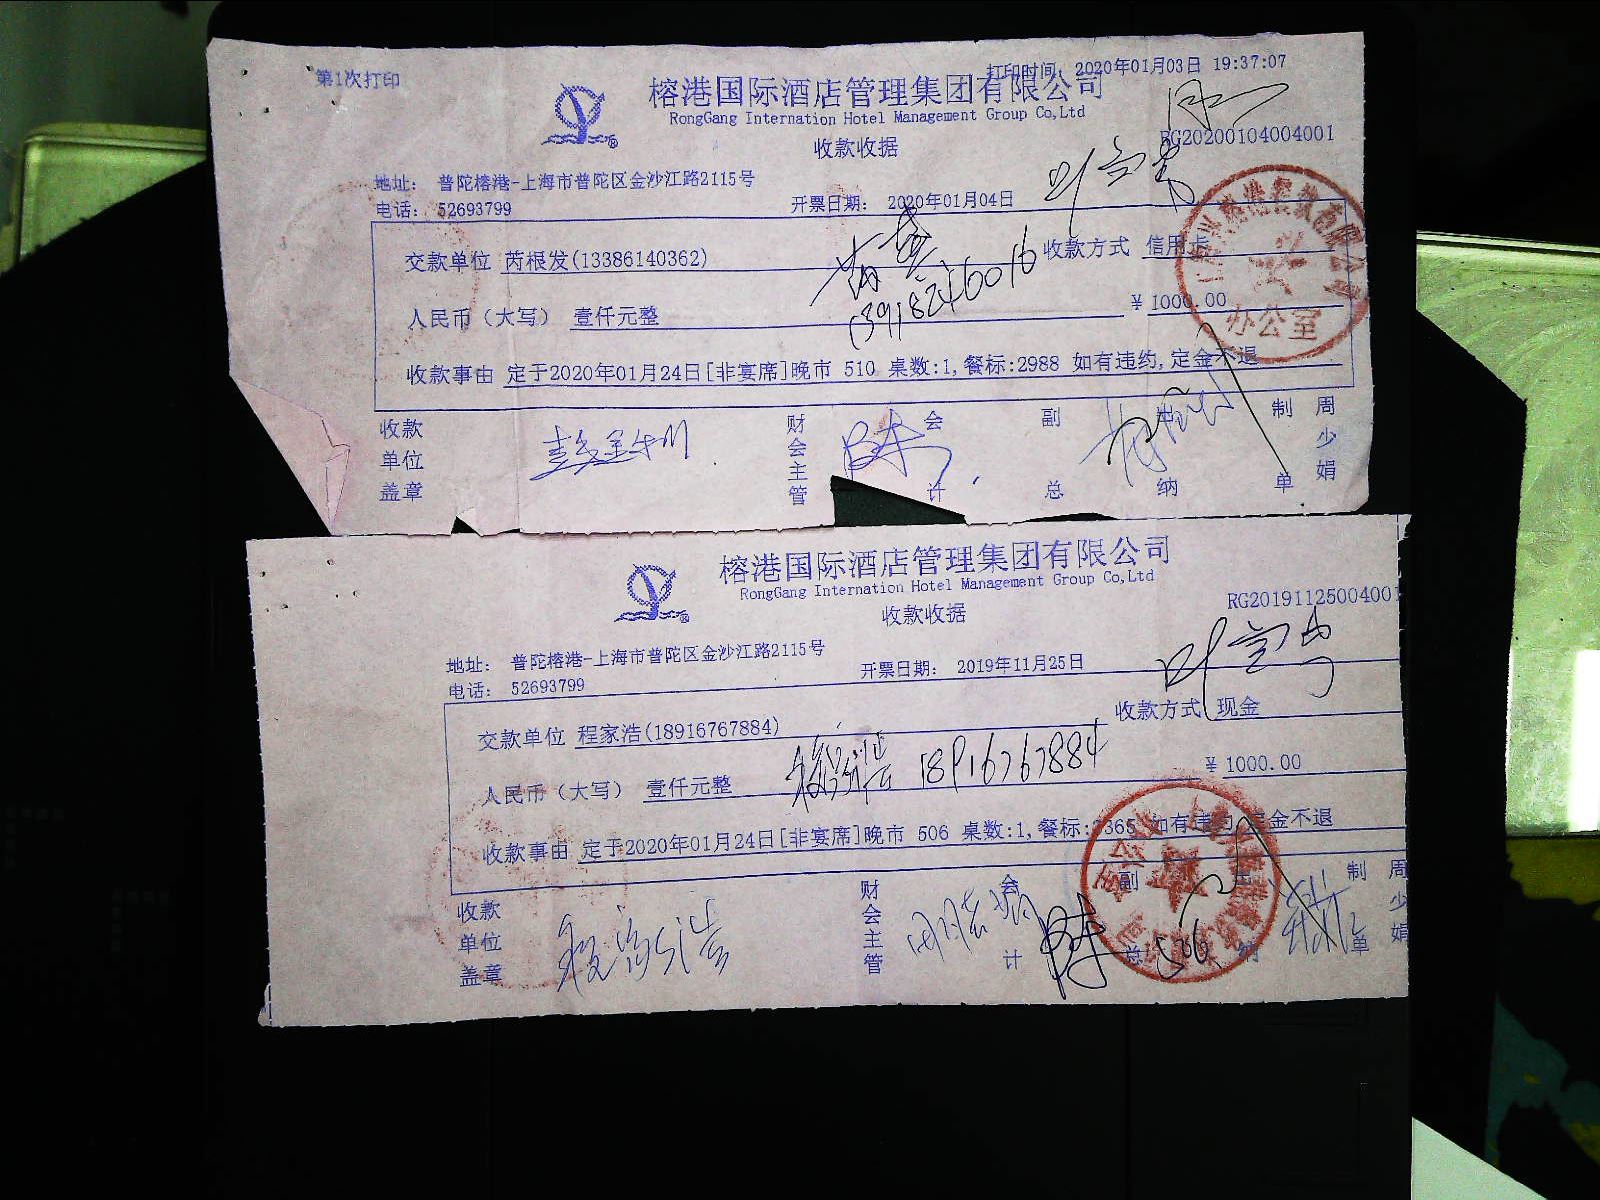 第1次打印
打印时间: 2020年01月03日 19:37:07
榕港国际酒店管理集团有限公司
RongGang Internation Hotel Management Group Co,Ltd
RG20200104004001
收款收据
地址: 普陀榕港-上海市普陀区金沙江路2115号
电话: 52693799
开票日期: 2020年01月04日
交款单位 芮根发(13386140362)
收款方式 信用卡
人民币（大写） 壹仟元整
¥ 1000.00
办公室
收款事由 定于2020年01月24日[非宴席]晚市 510 桌数:1,餐标:2988 如有违约,定金不退
收款单位盖章
财会主管
会计
副总
出纳
制单
周少娟
榕港国际酒店管理集团有限公司
RongGang Internation Hotel Management Group Co,Ltd
RG20191125004001
收款收据
地址: 普陀榕港-上海市普陀区金沙江路2115号
电话: 52693799
开票日期: 2019年11月25日
交款单位 程家浩(18916767884)
收款方式 现金
程家浩 18916767884
人民币（大写） 壹仟元整
¥ 1000.00
收款事由 定于2020年01月24日[非宴席]晚市 506 桌数:1,餐标:3365 如有违约,定金不退
收款单位盖章
程家浩
财会主管
会计
副总
506
出纳
制单
周少娟